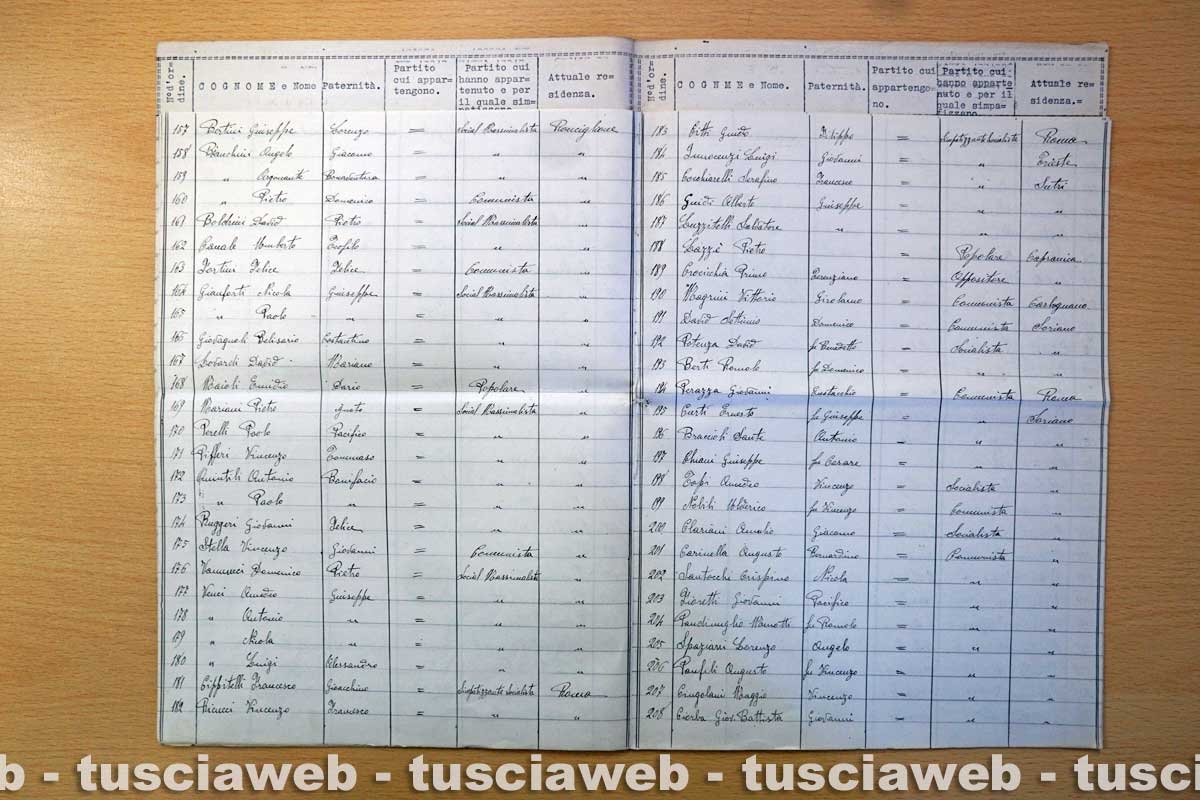 N°d'or=
dine.
C O G N O M E e Nome
Paternità.
Partito
cui appar=
tengono.
Partito cui
hanno appar=
tenuto e per
il quale sim=
Attuale re=
sidenza.
157 Bertini Giuseppe Lorenzo = Social Massimalista Ronciglione
158 Bianchini Angelo Giacomo = " "
159 " Argonante Bonaventura "
160 " Pietro Domenico = Comunista "
161 Boldrini David Pietro = Social Massimalista "
162 Canale Umberto Teofilo = " "
163 Fortini Felice Felice = Comunista "
164 Gianforti Nicola Giuseppe = Social Massimalista "
165 " Paolo " = " "
165 Giovagnoli Belisario Costantino = " "
167 Lovardi David Mariano = " "
168 Maioli Emidio Dario = Popolare "
169 Mariani Pietro = Social Massimalista "
170 Perelli Paolo Pacifico = " "
171 Pifferi Vincenzo Tommaso = " "
172 Quintili Antonio Bonifacio = " "
173 " Paolo " = " "
174 Ruggeri Giovanni Felice = " "
175 Stella Vincenzo Giovanni = Comunista "
176 Vannucci Domenico Pietro = Social Massimalista "
177 Venci Amedeo Giuseppe = " "
178 " Antonio " = " "
179 " Nicola " = " "
180 " Luigi Alessandro = " "
181 Cippitelli Francesco Gioacchino = Simpatizzante socialista Roma
182 Ricucci Vincenzo Francesco = " "
N°d'or=
dine.
C O G N O M E e Nome.
Paternità.
Partito cui
appartengo=
no.
Partito cui
hanno apparte
nuto e per il
quale simpa=
tizzano
Attuale re
sidenza.=
183 Citti Guido Filippo = Simpatizzante socialista Roma
184 Innocenzi Luigi Giovanni = " Trieste
185 Cocchiarelli Serafino Francesco = " Sutri
186 Guidi Alberto Giuseppe = " "
187 Luzzitelli Salvatore " = " "
188 Lazzè Pietro = Popolare Capranica
189 Crocichia Primo = Oppositore "
190 Magrini Vittorio Girolamo = Comunista Carbognano
191 David Settimio Domenico = Comunista Soriano
192 Potenza David fu Benedetto = Socialista "
193 Berti Romolo fu Domenico = " "
194 Perazza Giovanni Eustacchio = Comunista Roma
195 Curti Ernesto fu Giuseppe = " Soriano
196 Braccioli Sante Antonio = " "
197 Chiani Giuseppe fu Cesare = " "
198 Topi Amedeo Vincenzo = Socialista "
199 Nobili Uderico fu Vincenzo = Comunista "
200 Clariani Amelio Giacomo = Socialista "
201 Carinella Augusto Bernardino = Comunista "
202 Santocchi Crispino Nicola = " "
203 Fioretti Giovanni Pacifico = " "
204 fu Romolo = " "
205 Spaziani Lorenzo Angelo = " "
206 Panfili Augusto fu Vincenzo = " "
207 Cingolani Maggio Vincenzo = " "
208 Cierba Giov. Battista Giovanni = " "
b - tusciaweb - tusciaweb - tusciaweb - tusci